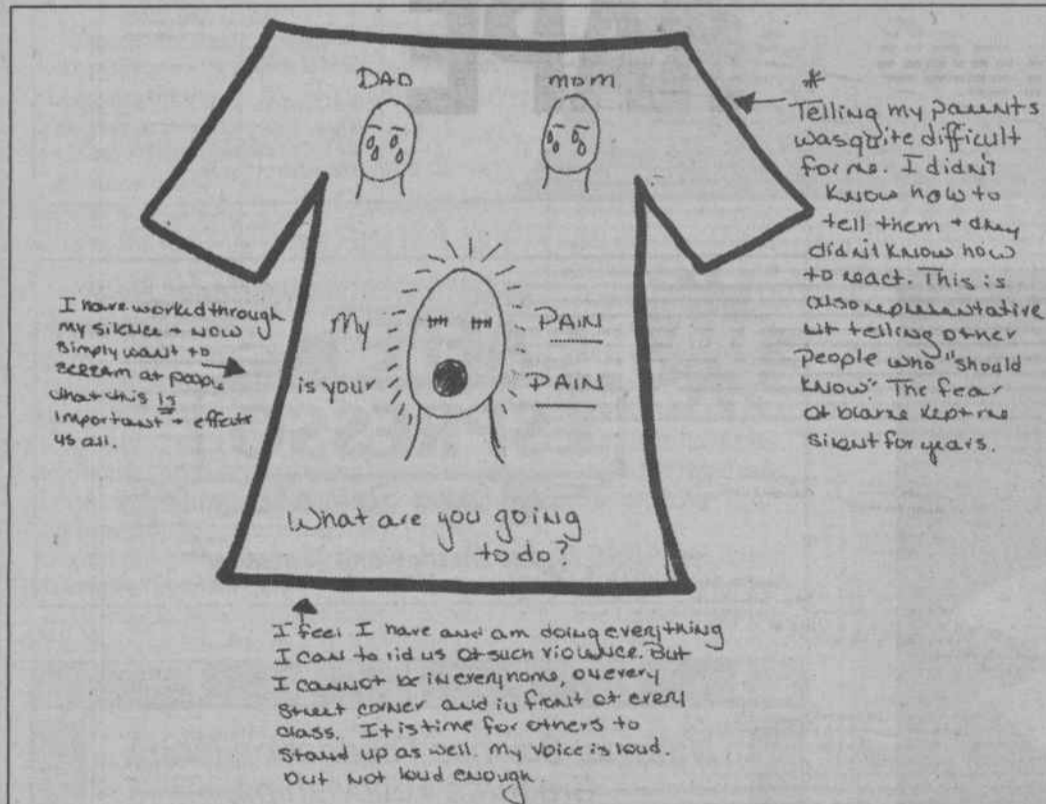 DAD
mom
*
Telling my parents
was quite difficult
for me. I didn't
know how to
tell them + they
didn't know how
to react. This is
also representative
w/ telling other
people who "should
know." The fear
of blame kept me
silent for years.
I have worked through
my silence + now
simply want to
scream at people
that this is
important + effects
us all.
My PAIN
is your PAIN
What are you going
to do?
I feel I have and am doing everything
I can to rid us of such violence. But
I cannot be in every home, on every
street corner and in front of every
class. It is time for others to
stand up as well. My voice is loud.
but not loud enough.